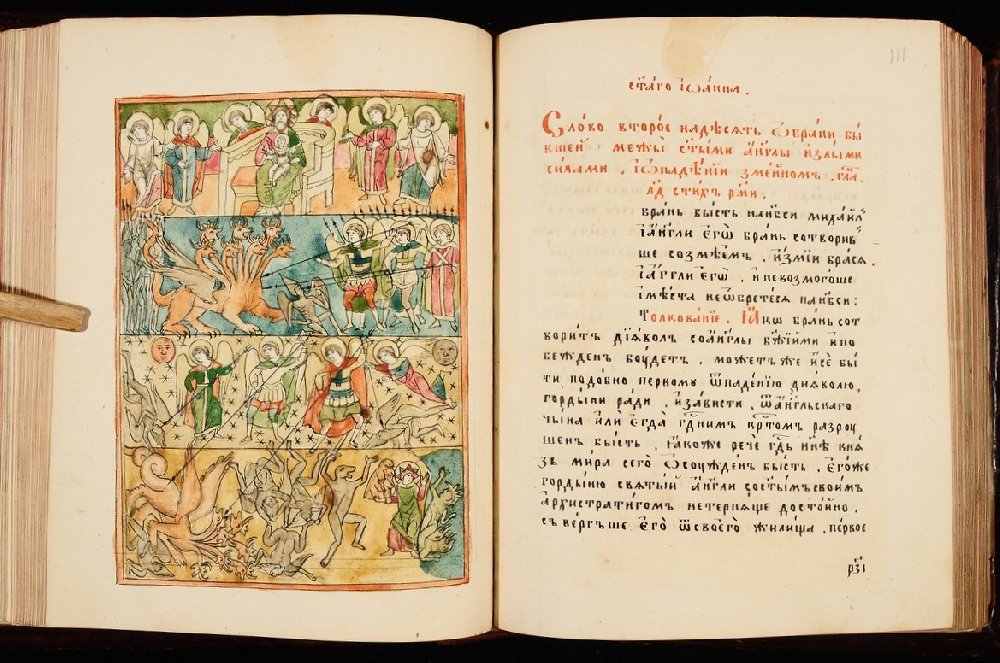 111
ст҃аго їѡанна .
Слово второе надесѧть ѡ брани бы
вшей межы ст҃ыми а҆нг҃лы и҆злыми
силами . и҆ѡпадѣнїи змеи́ном . гла
л҃д стихъ рм҃и .
брань бысть нанб҃си михаи́лъ
їа҆нг҃ли є҆гѡ̀ брань сотвори
ше созмѣемъ . и҆змїи брасѧ .
їа҆нг҃ли є҆гѡ̀ . и҆невозмогоше
їмѣста неѡбретесѧ нанб҃си :
Толкованїе . Ꙗ҆кѡ брань сот
воритъ дїа́волъ соа҆нг҃лы бж҃їими и҆по
бежденъ бꙋдетъ . можетъ же и҆сѐ бы
ти подобно первому ѿпаденїю дїа́волю ,
гордыни ради , и҆зависти , ѿа҆нг҃льскаго
чи́на и҆лѝ є҆гда̀ гд҃нимъ крⷭ҇томъ разрꙋ
шенъ бысть , ꙗ҆коже рече гдⷭ҇ь нн҃ѣ кнѧ
зь мира сего̀ ѡсꙋжденъ бысть , є҆гоже
гордыню свѧты́й а҆нг҃ли состы҃мъ свои́мъ
архистратигомъ нетерпѧще досто́йно ,
съвергъше є҆го̀ ѿсвоегѡ̀ жили́ща , первое
рз҃і